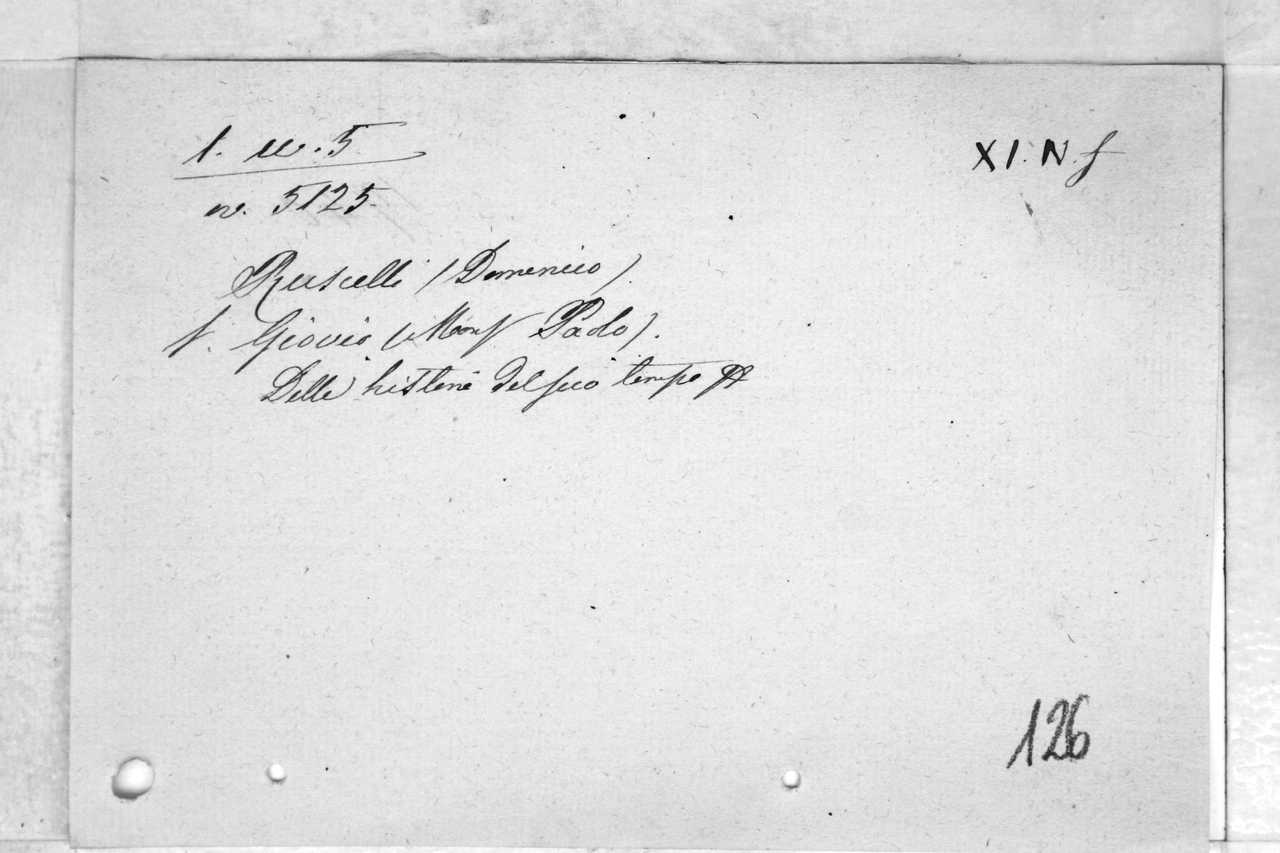 1. w. 5
XI. N. f
n. 5125
Ruscelli (Domenico)
f. Giovio (Mons Paolo).
Delle historie del suo tempo
126